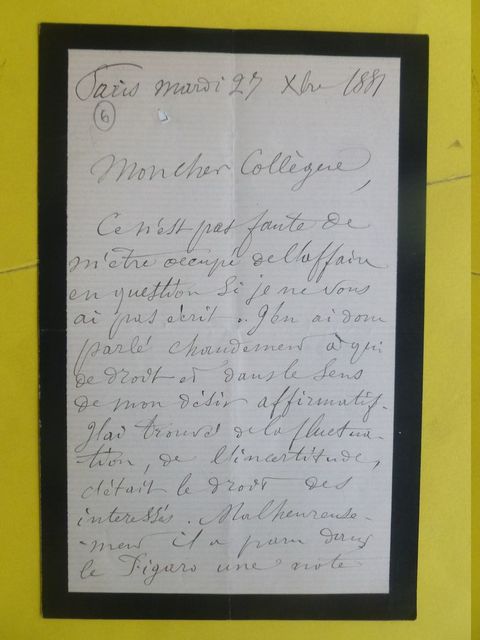 Paris mardi 27 Xbre 1881
6
Mon cher Collègue,
Ce n'est pas faute de
m'être occupé de l'affaire
en question si je ne vous
ai pas écrit. J'en ai donc
parlé chaudement à qui
de droit et dans le sens
de mon désir affirmatif.
J'ai trouvé de la fluctua-
tion, de l'incertitude,
c'était le droit des
interessés. Malheureuse-
-ment il a paru dans
le Figaro une note